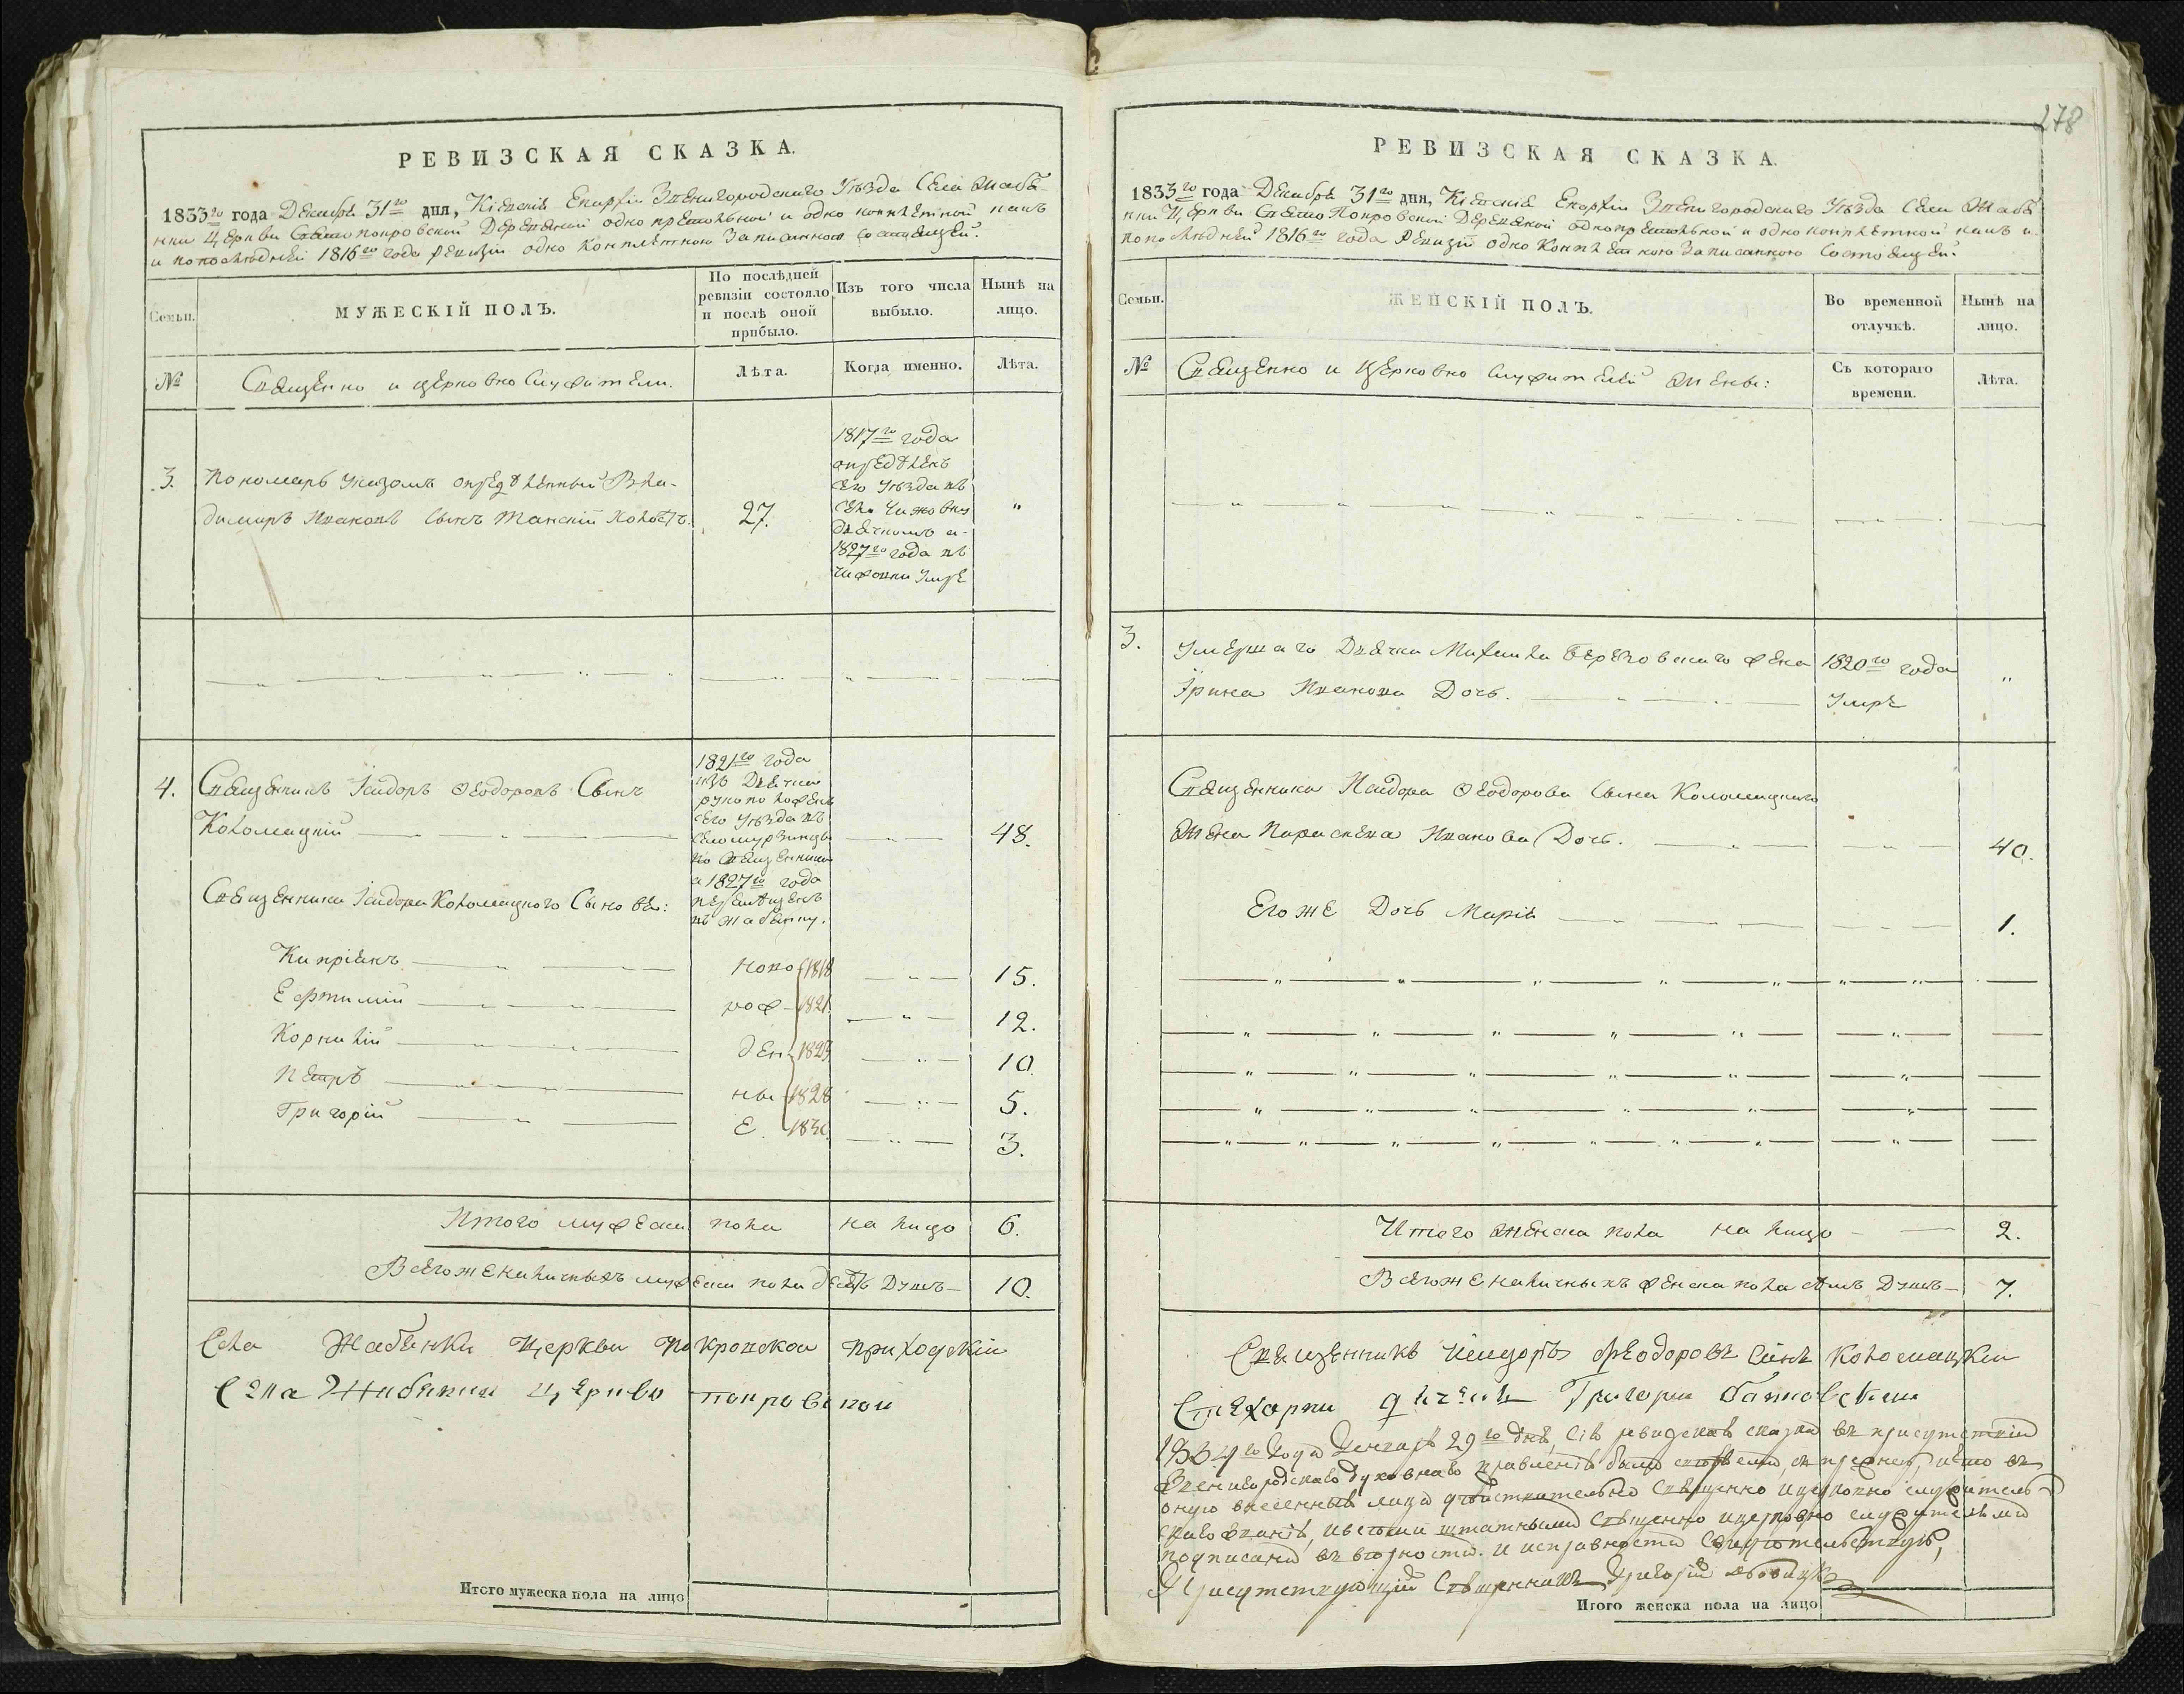 РЕВИЗСКАЯ СКАЗКА.
1833го года Декабря 31го дня, Кіевскія Епархіи Звенигородскаго Уѣзда Села Жабян-
ки Церкви Свято покровской Деревяной одно престольной и одно комплетной какъ
и попослѣдней 1816го года Ревизіи одно комплетною Записанною состоящей.
Семьи.
МУЖЕСКІЙ ПОЛЪ.
По послѣдней ревизіи состояло и послѣ оной прибыло.
Изъ того числа выбыло.
Нынѣ на лицо.
№
Священно и церковно служители.
Лѣта.
Когда именно.
Лѣта.
3.
Пономарь указомъ опредѣленный Вла-
димиръ Иваковъ Сынъ Танскій Холостъ.
27.
1817го года
опредѣленъ
сего уѣзда въ
село Чижовку
дьячкомъ а
1827го года въ
Чижовки Умре
"
4.
Священникъ Ісидоръ Ѳеодоровъ Сынъ
Коломацкій
1821го года
изъ Дьячка
рукоположенъ
сего уѣзда въ
село мурзинцы
во Священника
а 1827го года
перемѣщенъ
въ жабянку.
48.
Священника Ісидора Коломацкого Сыновья:
Кипріянъ ново 1818 15.
Ефтимій рож 1821 12.
Корнилій ден 1823 10.
Петръ ны 1828 5.
Григорій е. 1830 3.
Итого мужеска пола на лицо 6.
Всего же наличныхъ мужеска пола десять Душъ 10.
Села Жабянки Церкви Покровской приходскій
Села Жабянки Церкво покровской
Итого мужеска пола на лицо
278
РЕВИЗСКАЯ СКАЗКА.
1833го года Декабря 31го дня, Кіевскія Епархіи Звенигородскаго Уѣзда Села Жабян
ки Церкви Свято Покровской Деревяной однопрестольной и одно комплетной какъ и
попослѣдней 1816го года Ревизіи одно Комплетною Записанною Состоящей.
Семьи.
ЖЕНСКІЙ ПОЛЪ.
Во временной отлучкѣ.
Нынѣ на лицо.
№
Священно и Церковно служителей жены:
Съ котораго времени.
Лѣта.
3.
Умершаго Дьячка Михаила Березовскаго жена
Ірина Иванова Дочь.
1820го года
Умре
"
Священника Исидора Ѳеодорова Сына Коломацкаго
жена Параскева Иванова Дочь. 40.
Егоже Дочь Марія 1.
Итого женска пола на лицо 2.
Всего же наличныхъ женска пола семь Душъ 7.
Священникъ Ѳеодоровъ Сынъ Коломацкій
Григорій
1834го Года Генваря 29го дня, Сія ревизская сказка въ присутствіи
Звенигородскаго духовнаго правленія была что въ
оную внесенныя лица дѣйствительно Священно и церковно служитель-
скаго званія, и всѣми штатными Священно и церковно служителями
подписана въ вѣрности и исправности Свидѣтельствую,
Присутствующій Священникъ Григорій
Итого женска пола на лицо